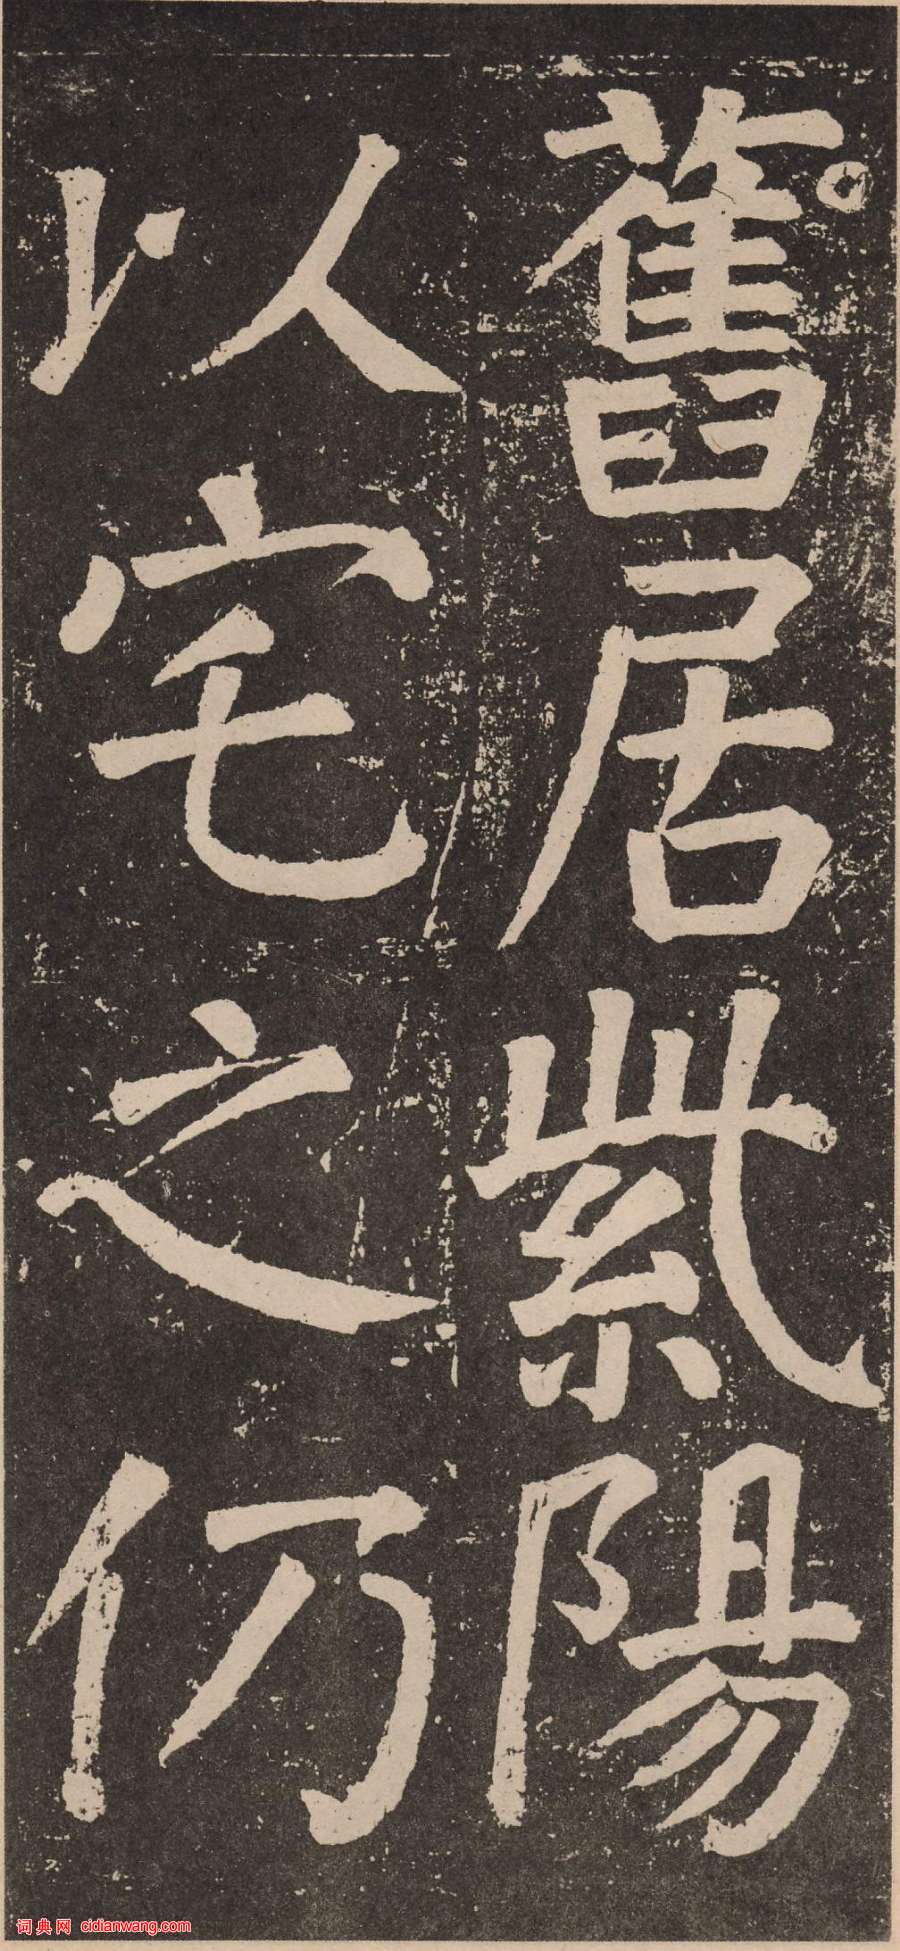 舊居紫陽
以宅之仍
词典网 cidianwang.com